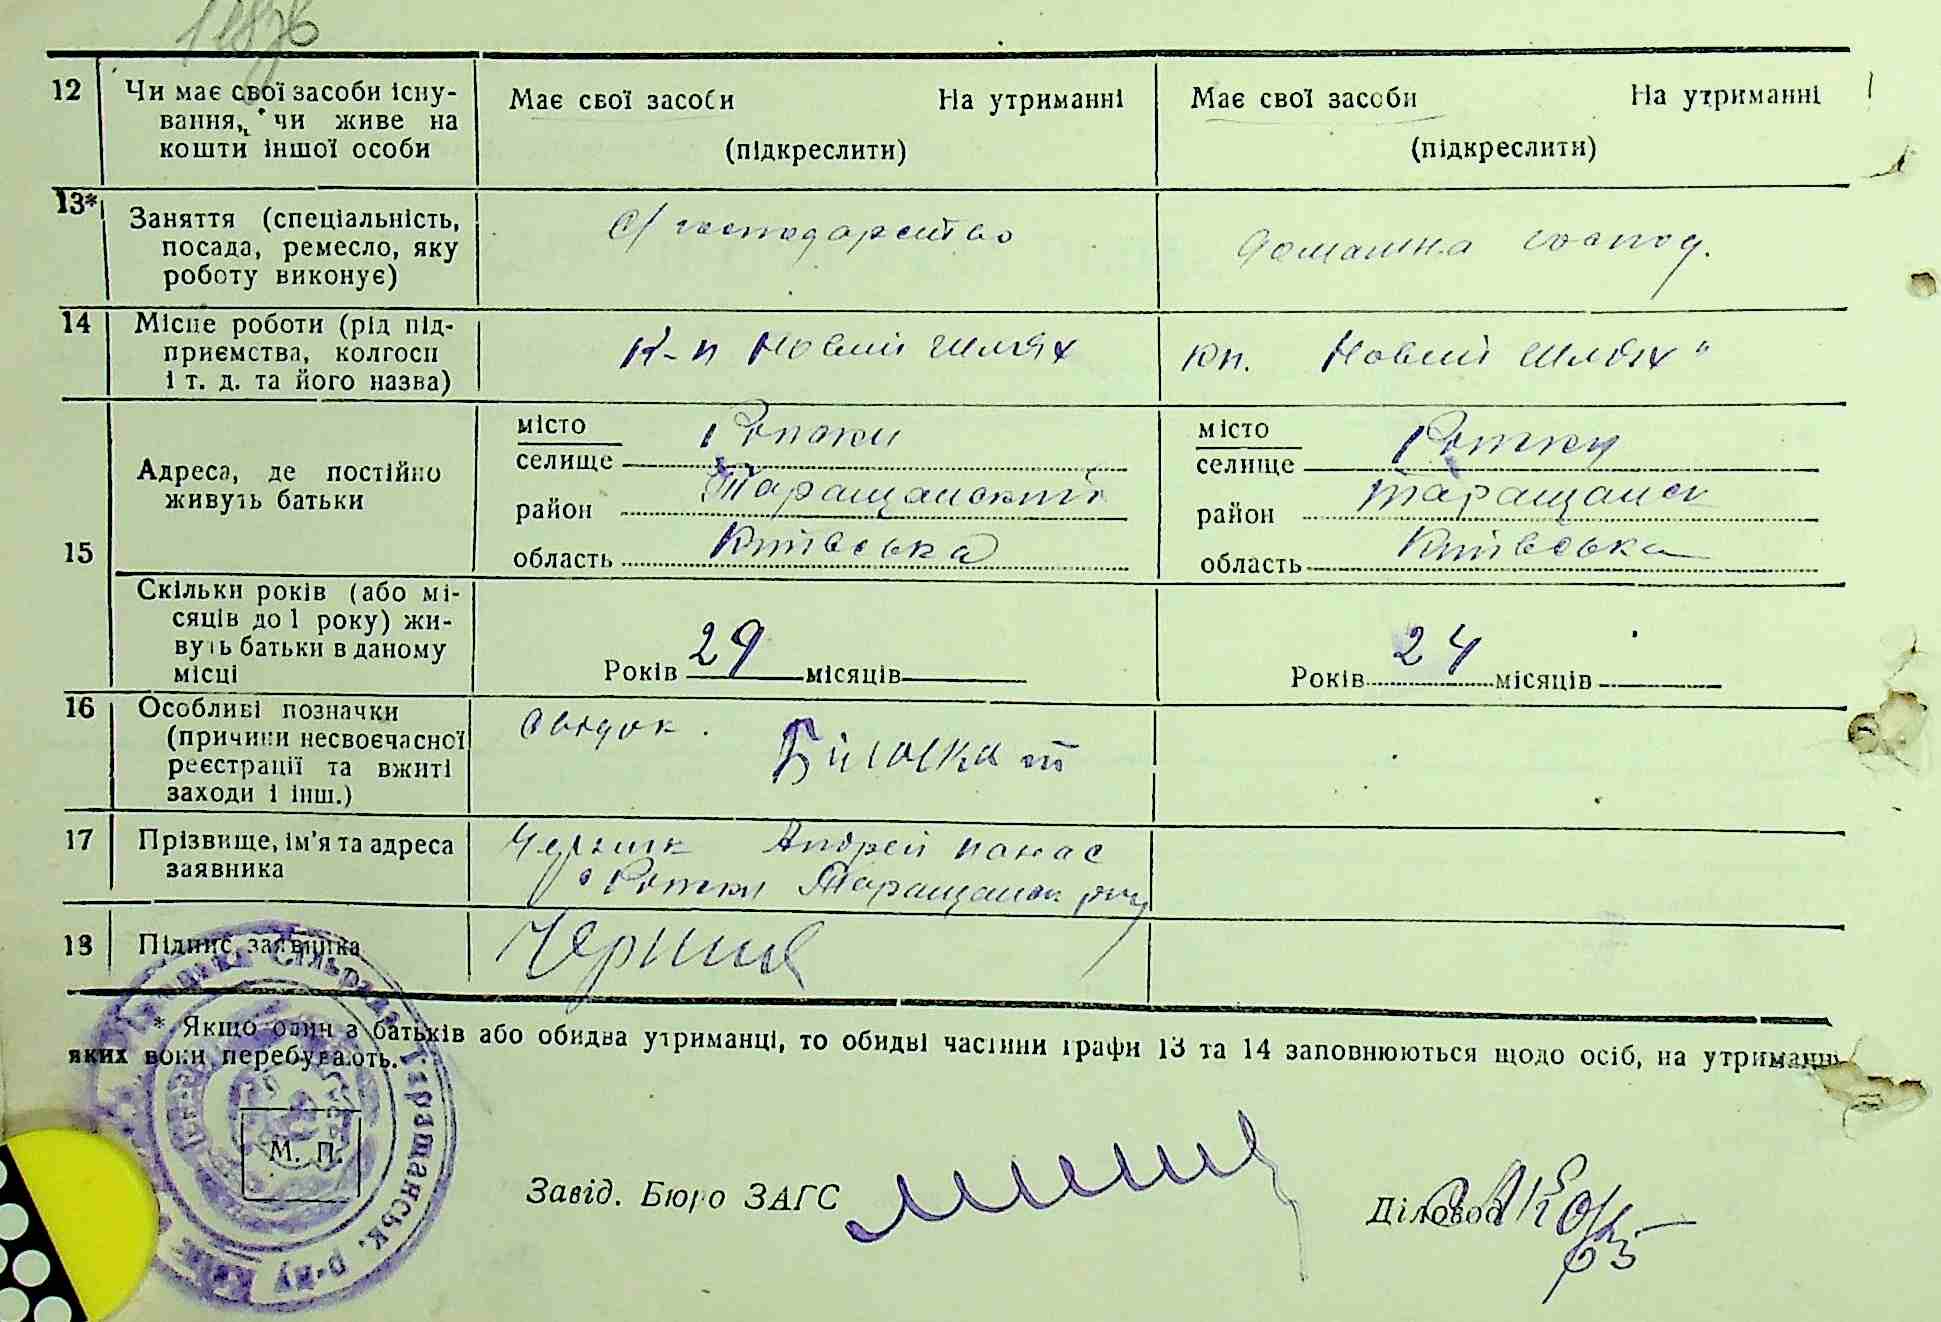 12 Чи має свої засоби існу-
вання, чи живе на
кошти іншої особи
Має свої засоби На утриманні
(підкреслити)
Має свої засоби На утриманні
(підкреслити)
13* Заняття (спеціальність,
посада, ремесло, яку
роботу виконує)
С/господарство
домашна господ.
14 Місце роботи (рід під-
приємства, колгосп
і т. д. та його назва)
К-п Новий шлях
кп. Новий шлях"
15 Адреса, де постійно
живуть батьки
місто
селище
район Таращанський
область Київська
місто
селище
район Таращанск
область Київська
Скільки років (або мі-
сяців до 1 року) жи-
вуть батьки в даному
місці
Років 29 місяців
Років 24 місяців
16 Особливі позначки
(причини несвоєчасної
реєстрації та вжиті
заходи і інш.)
17 Прізвище, ім'я та адреса
заявника
Андрей Панас
Таращанск
18 Підпис заявника
* Якщо один з батьків або обидва утриманці, то обидві частини графи 13 та 14 заповнюються щодо осіб, на утриманні
яких вони перебувають.
М. П.
Завід. Бюро ЗАГС
Діловод